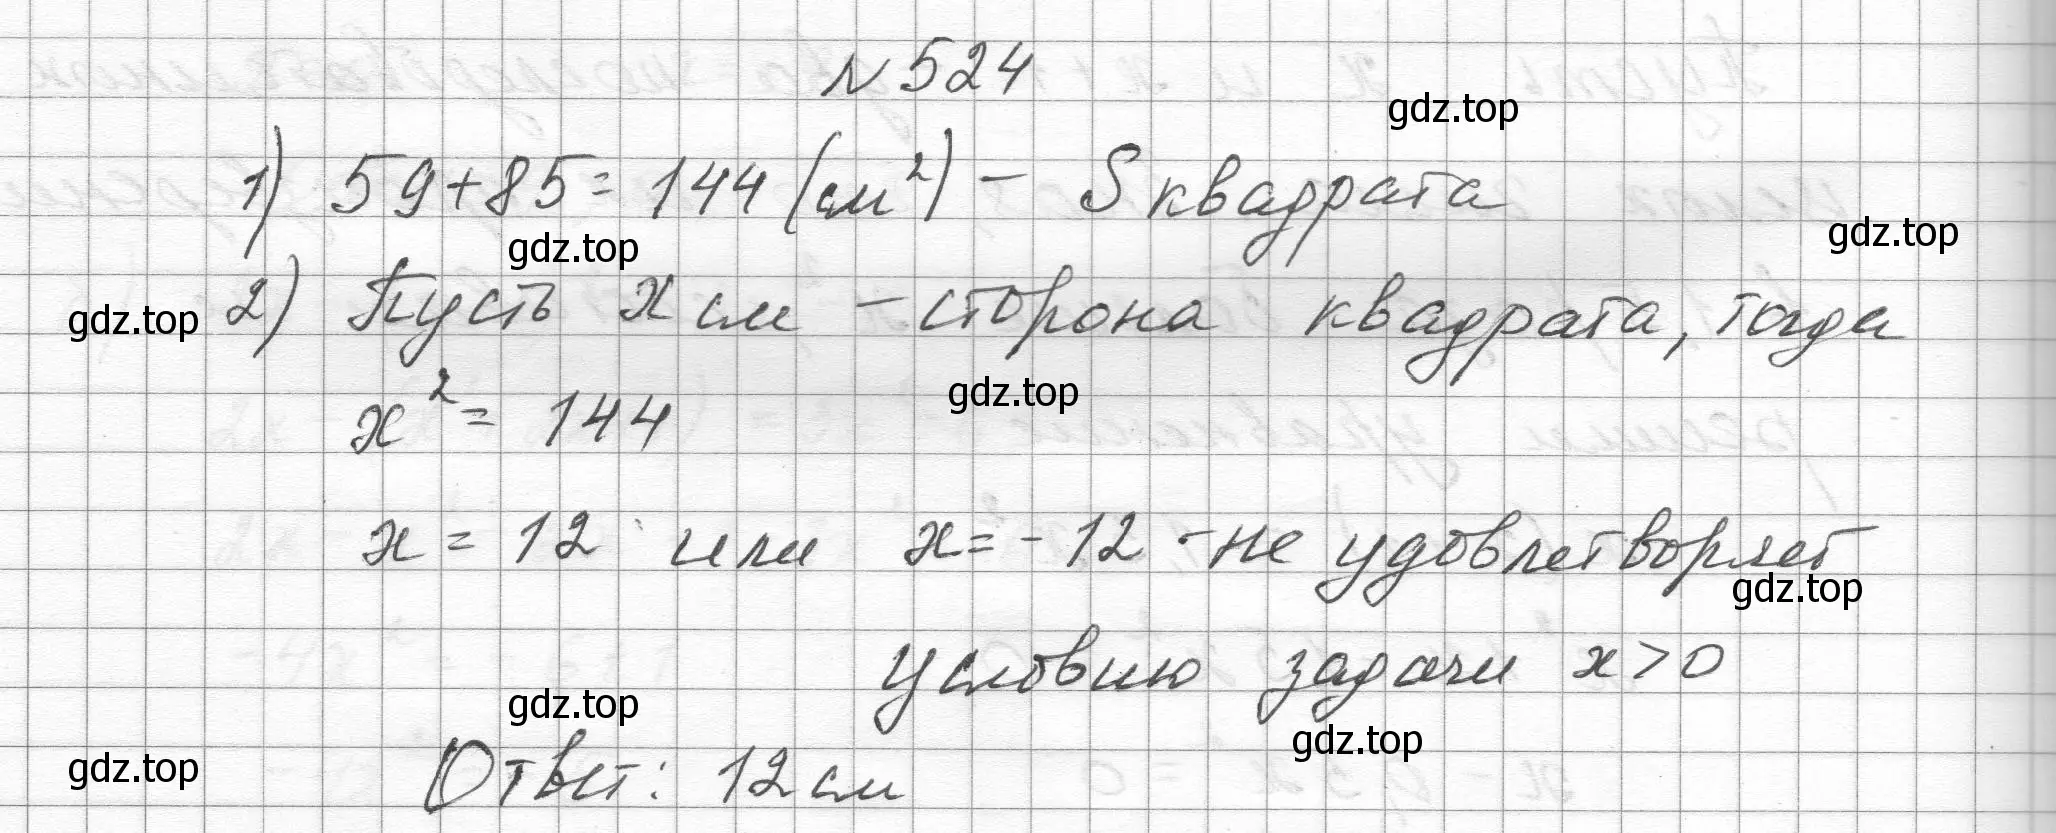 № 524
gdz.top
1) 59+85=144 (см²) – Sквадрата
gdz.top
gdz.top
2) Пусть x см – сторона квадрата, тогда
gdz.top
x² = 144
gdz.top
x = 12 или x = -12 - не удовлетворяет
gdz.top
условию задачи x > 0
gdz.top
gdz.top
Ответ: 12 см
gdz.top